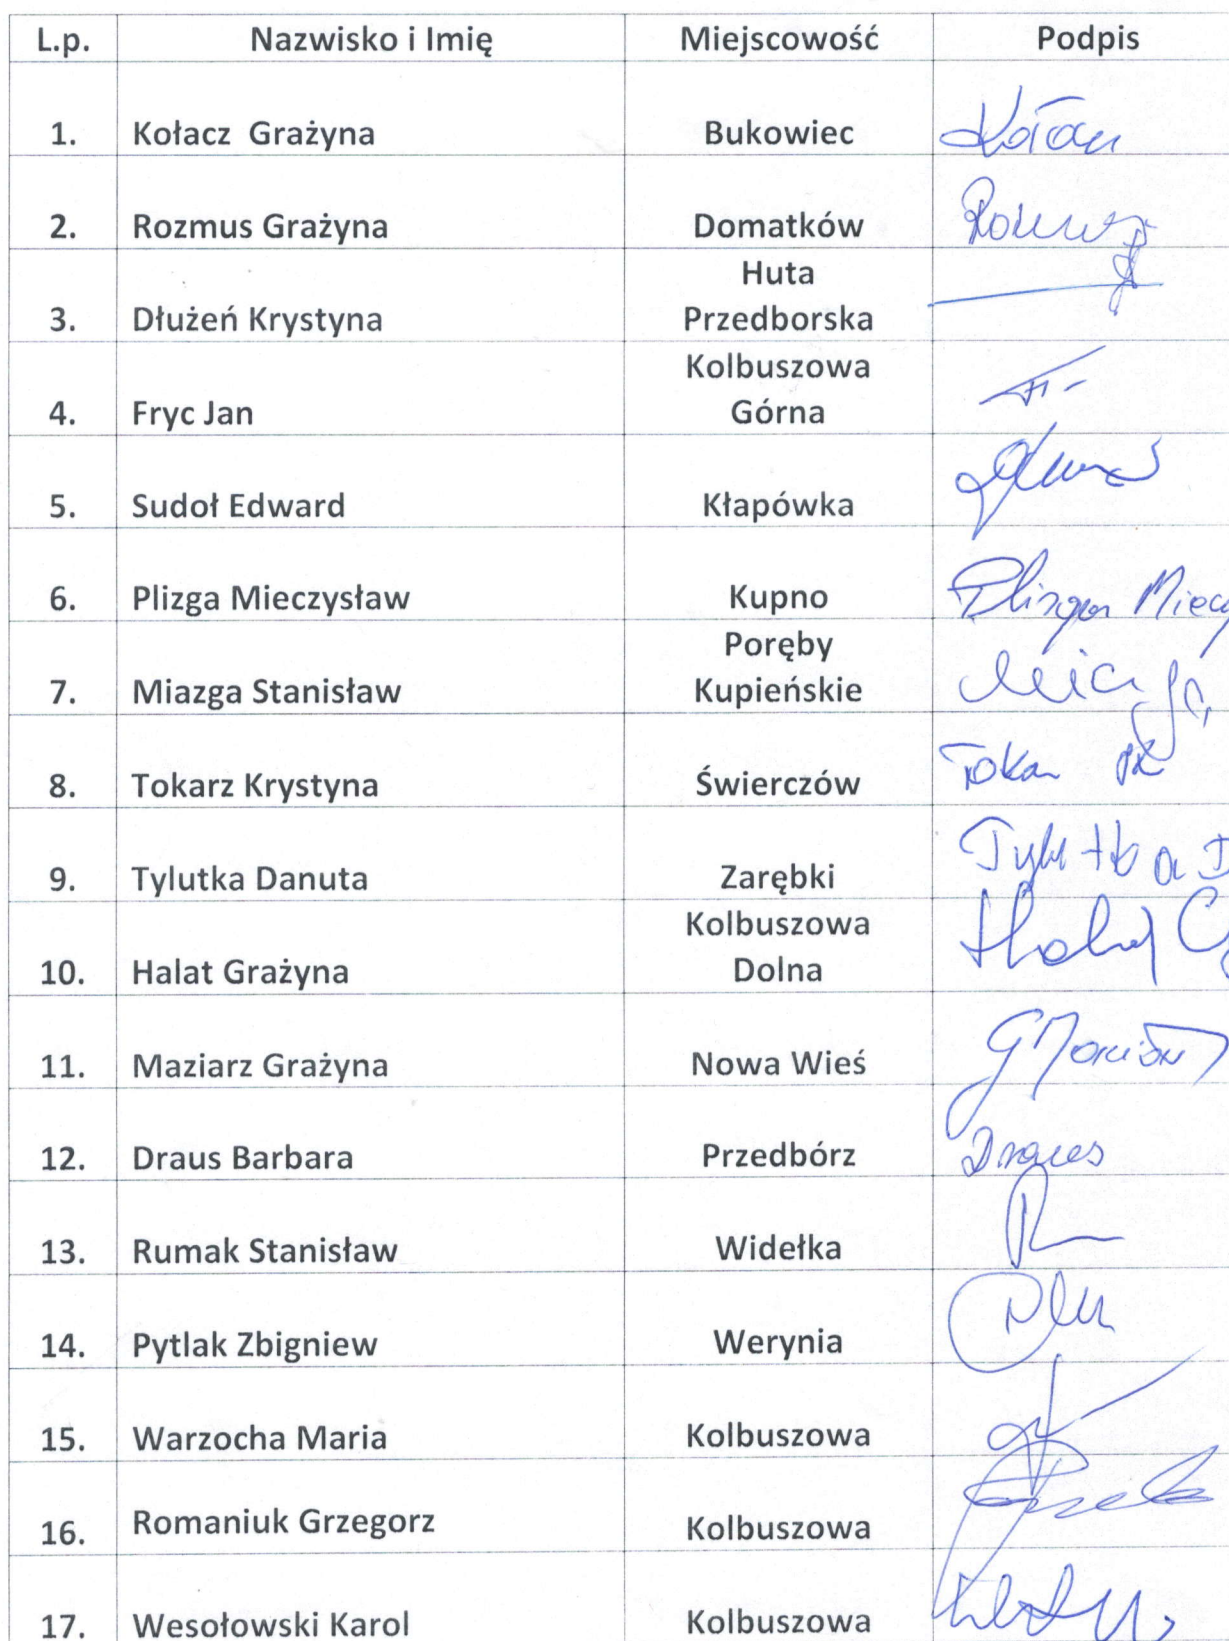 L.p. Nazwisko i Imię Miejscowość Podpis
1. Kołacz Grażyna Bukowiec Kołacz
2. Rozmus Grażyna Domatków Rozmus
Huta
3. Dłużeń Krystyna Przedborska
Kolbuszowa
4. Fryc Jan Górna
5. Sudoł Edward Kłapówka
6. Plizga Mieczysław Kupno Plizga Miecz
Poręby
7. Miazga Stanisław Kupieńskie Miazga
8. Tokarz Krystyna Świerczów Tokarz
9. Tylutka Danuta Zarębki Tylutka D
Kolbuszowa
10. Halat Grażyna Dolna Halat G
11. Maziarz Grażyna Nowa Wieś G Maziarz
12. Draus Barbara Przedbórz Draus
13. Rumak Stanisław Widełka
14. Pytlak Zbigniew Werynia
15. Warzocha Maria Kolbuszowa
16. Romaniuk Grzegorz Kolbuszowa
17. Wesołowski Karol Kolbuszowa